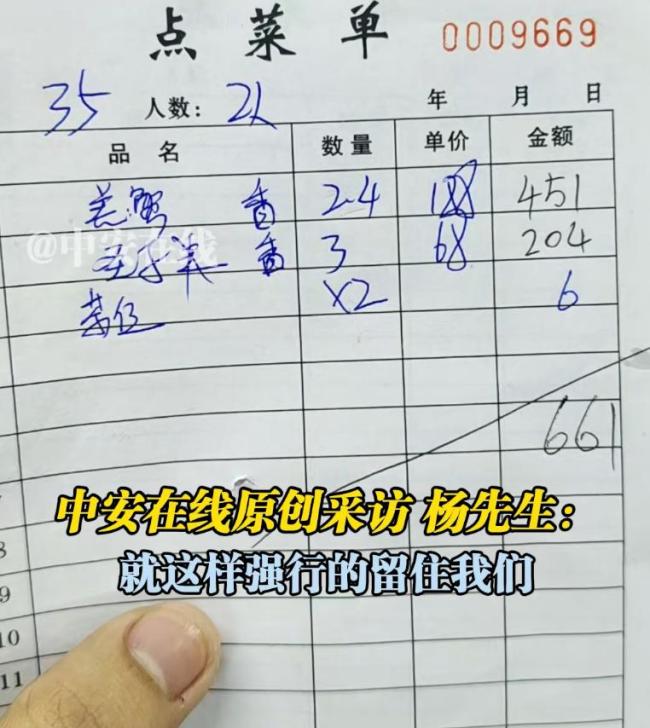 点菜单 0009669
35 人数: 2人 年 月 日
品名 数量 单价 金额
羔蟹 香 2.4 188 451
@中安在线
香 3 68 204
茶位 X2 6
661
中安在线原创采访 杨先生:
就这样强行的留住我们
8
9
10
11